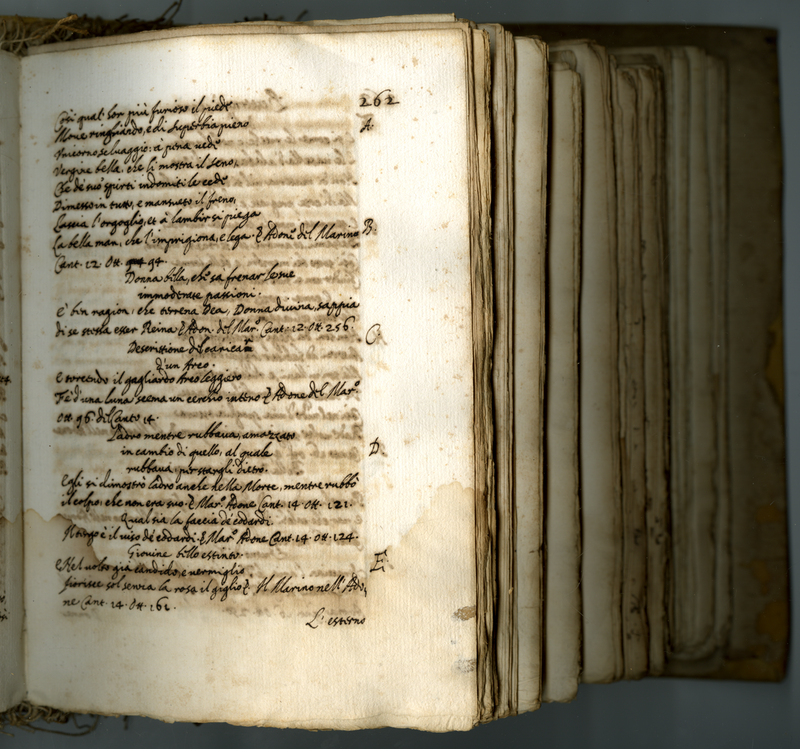 262
Così qual' hor più furioso il piede
A.
Moue ringhiando, e di superbia pieno
Vnicorno seluaggio: a pena uede
Vergine bella, che li mostra il seno,
Che de suoi spirti indomiti le cede
Dimesso in tutto, e mansueto il freno,
Lascia l'orgoglio, et à lambir si piega
La bella man, che l'imprigiona, e lega. Adone del Marino
B.
Cant. 12. Ott. 94.
Donna bella, che sa frenar le sue
immoderate passioni.
E' ben ragion, che terrena Dea, Donna divina, sappia
di se stessa esser Reina Adon. del Mar. Cant. 12. Ott. 256.
C.
Descrittione del caricar
d'un Arco.
E torcendo il gagliardo Arco leggiero
Fè d'una luna scema un cerchio intero Adone del Mar.
Ott. 96. del Canto 14.
Ladro mentre rubbaua, amazzato
in cambio di quello, al quale
D.
rubbaua, per stargli dietro.
Egli si dimostrò ladro anche nella Morte, mentre rubbò
il colpo, che non era suo. Mar. Adone Cant. 14. Ott. 121.
Qual sia la faccia de codardi.
Il tergo è il uiso de codardi. Mar. Adone Cant. 14. Ott. 124.
Giouine bello estinto.
E.
E Nel uolto già candido, e vermiglio
fiorisce sol senza la rosa il giglio. Il Marino nell' Ado,
ne Cant. 14. Ott. 161.
L' esterno